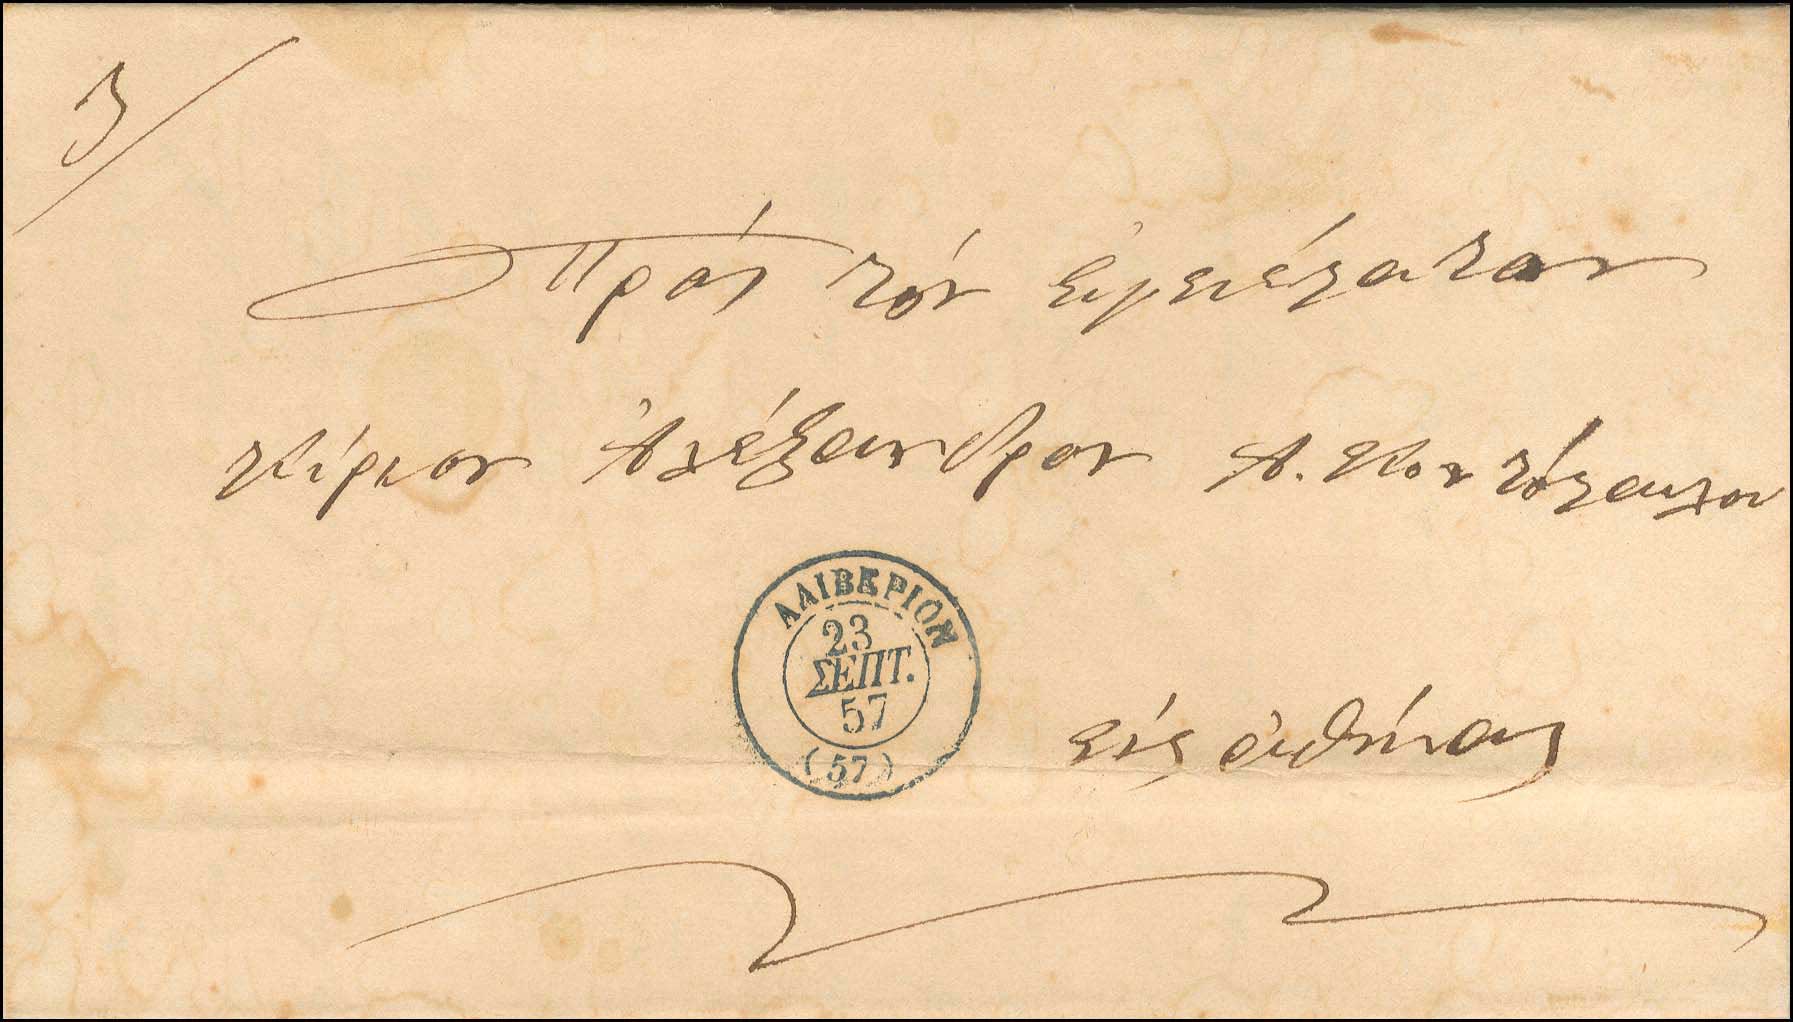 3/
Πρὸς τὸν εὐγενέστατον
Κύριον Ἀλέξανδρον Α. Κοντόσταυλον
ΑΛΙΒΕΡΙΟΝ
23
ΣΕΠΤ.
57
(57)
εἰς Ἀθήνας